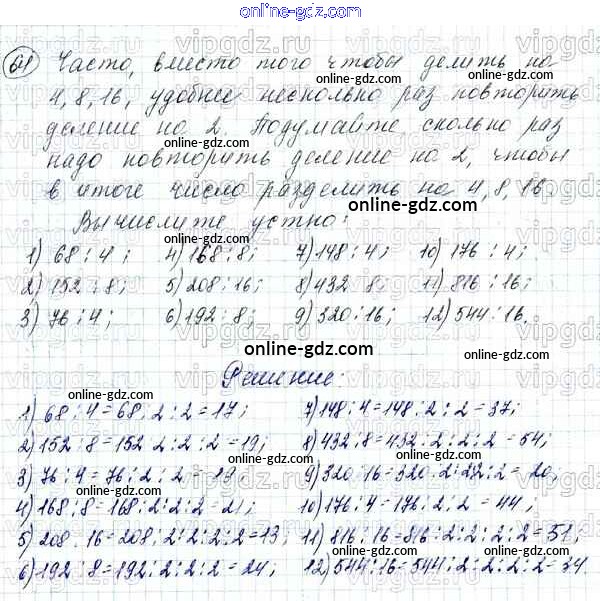 online-gdz.com
64 Часто, вместо того чтобы делить на
4, 8, 16, удобнее несколько раз повторить
деление на 2. Подумайте, сколько раз
надо повторить деление на 2, чтобы
в итоге число разделить на 4, 8, 16.
Вычислите устно:
1) 68 : 4; 4) 168 : 8; 7) 148 : 4; 10) 176 : 4;
2) 152 : 8; 5) 208 : 16; 8) 432 : 8; 11) 816 : 16;
3) 76 : 4; 6) 192 : 8; 9) 320 : 16; 12) 544 : 16.
online-gdz.com
Решение:
1) 68 : 4 = 68 : 2 : 2 = 17; 7) 148 : 4 = 148 : 2 : 2 = 37;
2) 152 : 8 = 152 : 2 : 2 : 2 = 19; 8) 432 : 8 = 432 : 2 : 2 : 2 = 54;
3) 76 : 4 = 76 : 2 : 2 = 19; 9) 320 : 16 = 320 : 2 : 2 : 2 : 2 = 20;
4) 168 : 8 = 168 : 2 : 2 : 2 = 21; 10) 176 : 4 = 176 : 2 : 2 = 44;
5) 208 : 16 = 208 : 2 : 2 : 2 : 2 = 13; 11) 816 : 16 = 816 : 2 : 2 : 2 : 2 = 51;
6) 192 : 8 = 192 : 2 : 2 : 2 = 24; 12) 544 : 16 = 544 : 2 : 2 : 2 : 2 = 34.